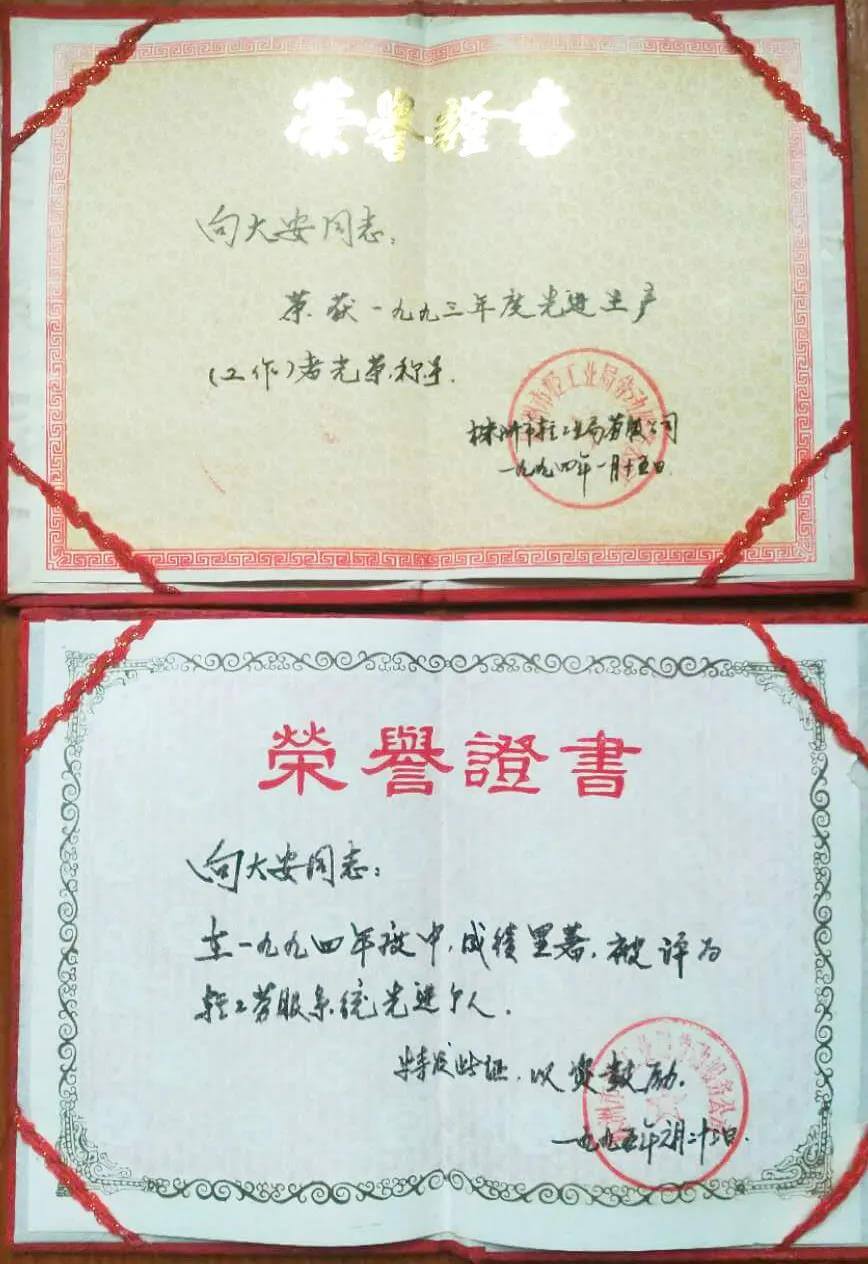 榮譽證書
向大安同志：
荣获一九九三年度先进生产
（工作）者光荣称号.
株洲市轻工业局劳服公司
一九九四年一月十五日
榮譽證書
向大安同志：
在一九九四年度中，成绩显著，被评为
轻工劳服系统先进个人.
特发此证，以资鼓励.
一九九五年二月二十二日.